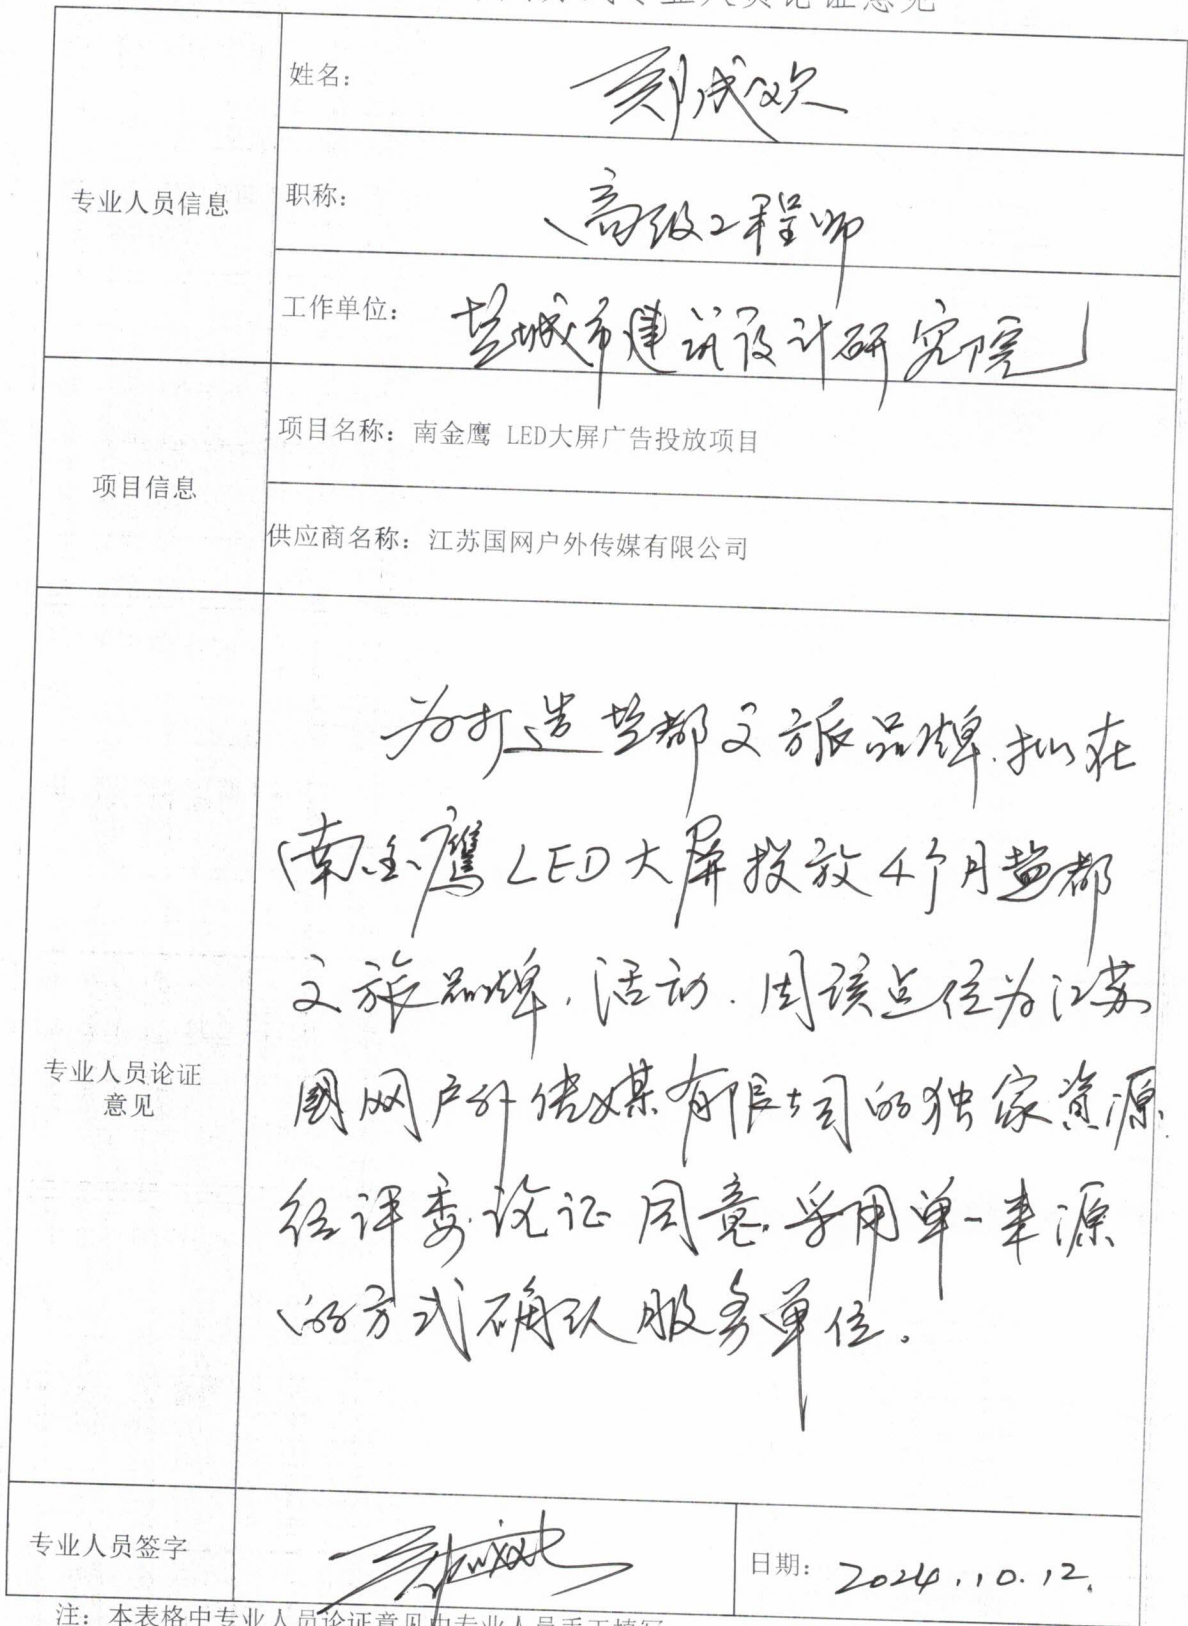 专业人员论证意见
专业人员信息
姓名：
职称： 高级工程师
工作单位： 盐城市建筑设计研究院
项目信息
项目名称：南金鹰 LED大屏广告投放项目
供应商名称：江苏国网户外传媒有限公司
专业人员论证
意见
为打造盐都文旅品牌，拟在
南金鹰LED大屏投放4个月盐都
文旅品牌、活动，因该点位为江苏
国网户外传媒有限公司的独家资源，
经评委论证同意采用单一来源
的方式确认服务单位。
专业人员签字
日期： 2024.10.12.
注：本表格中专业人员论证意见由专业人员手工填写